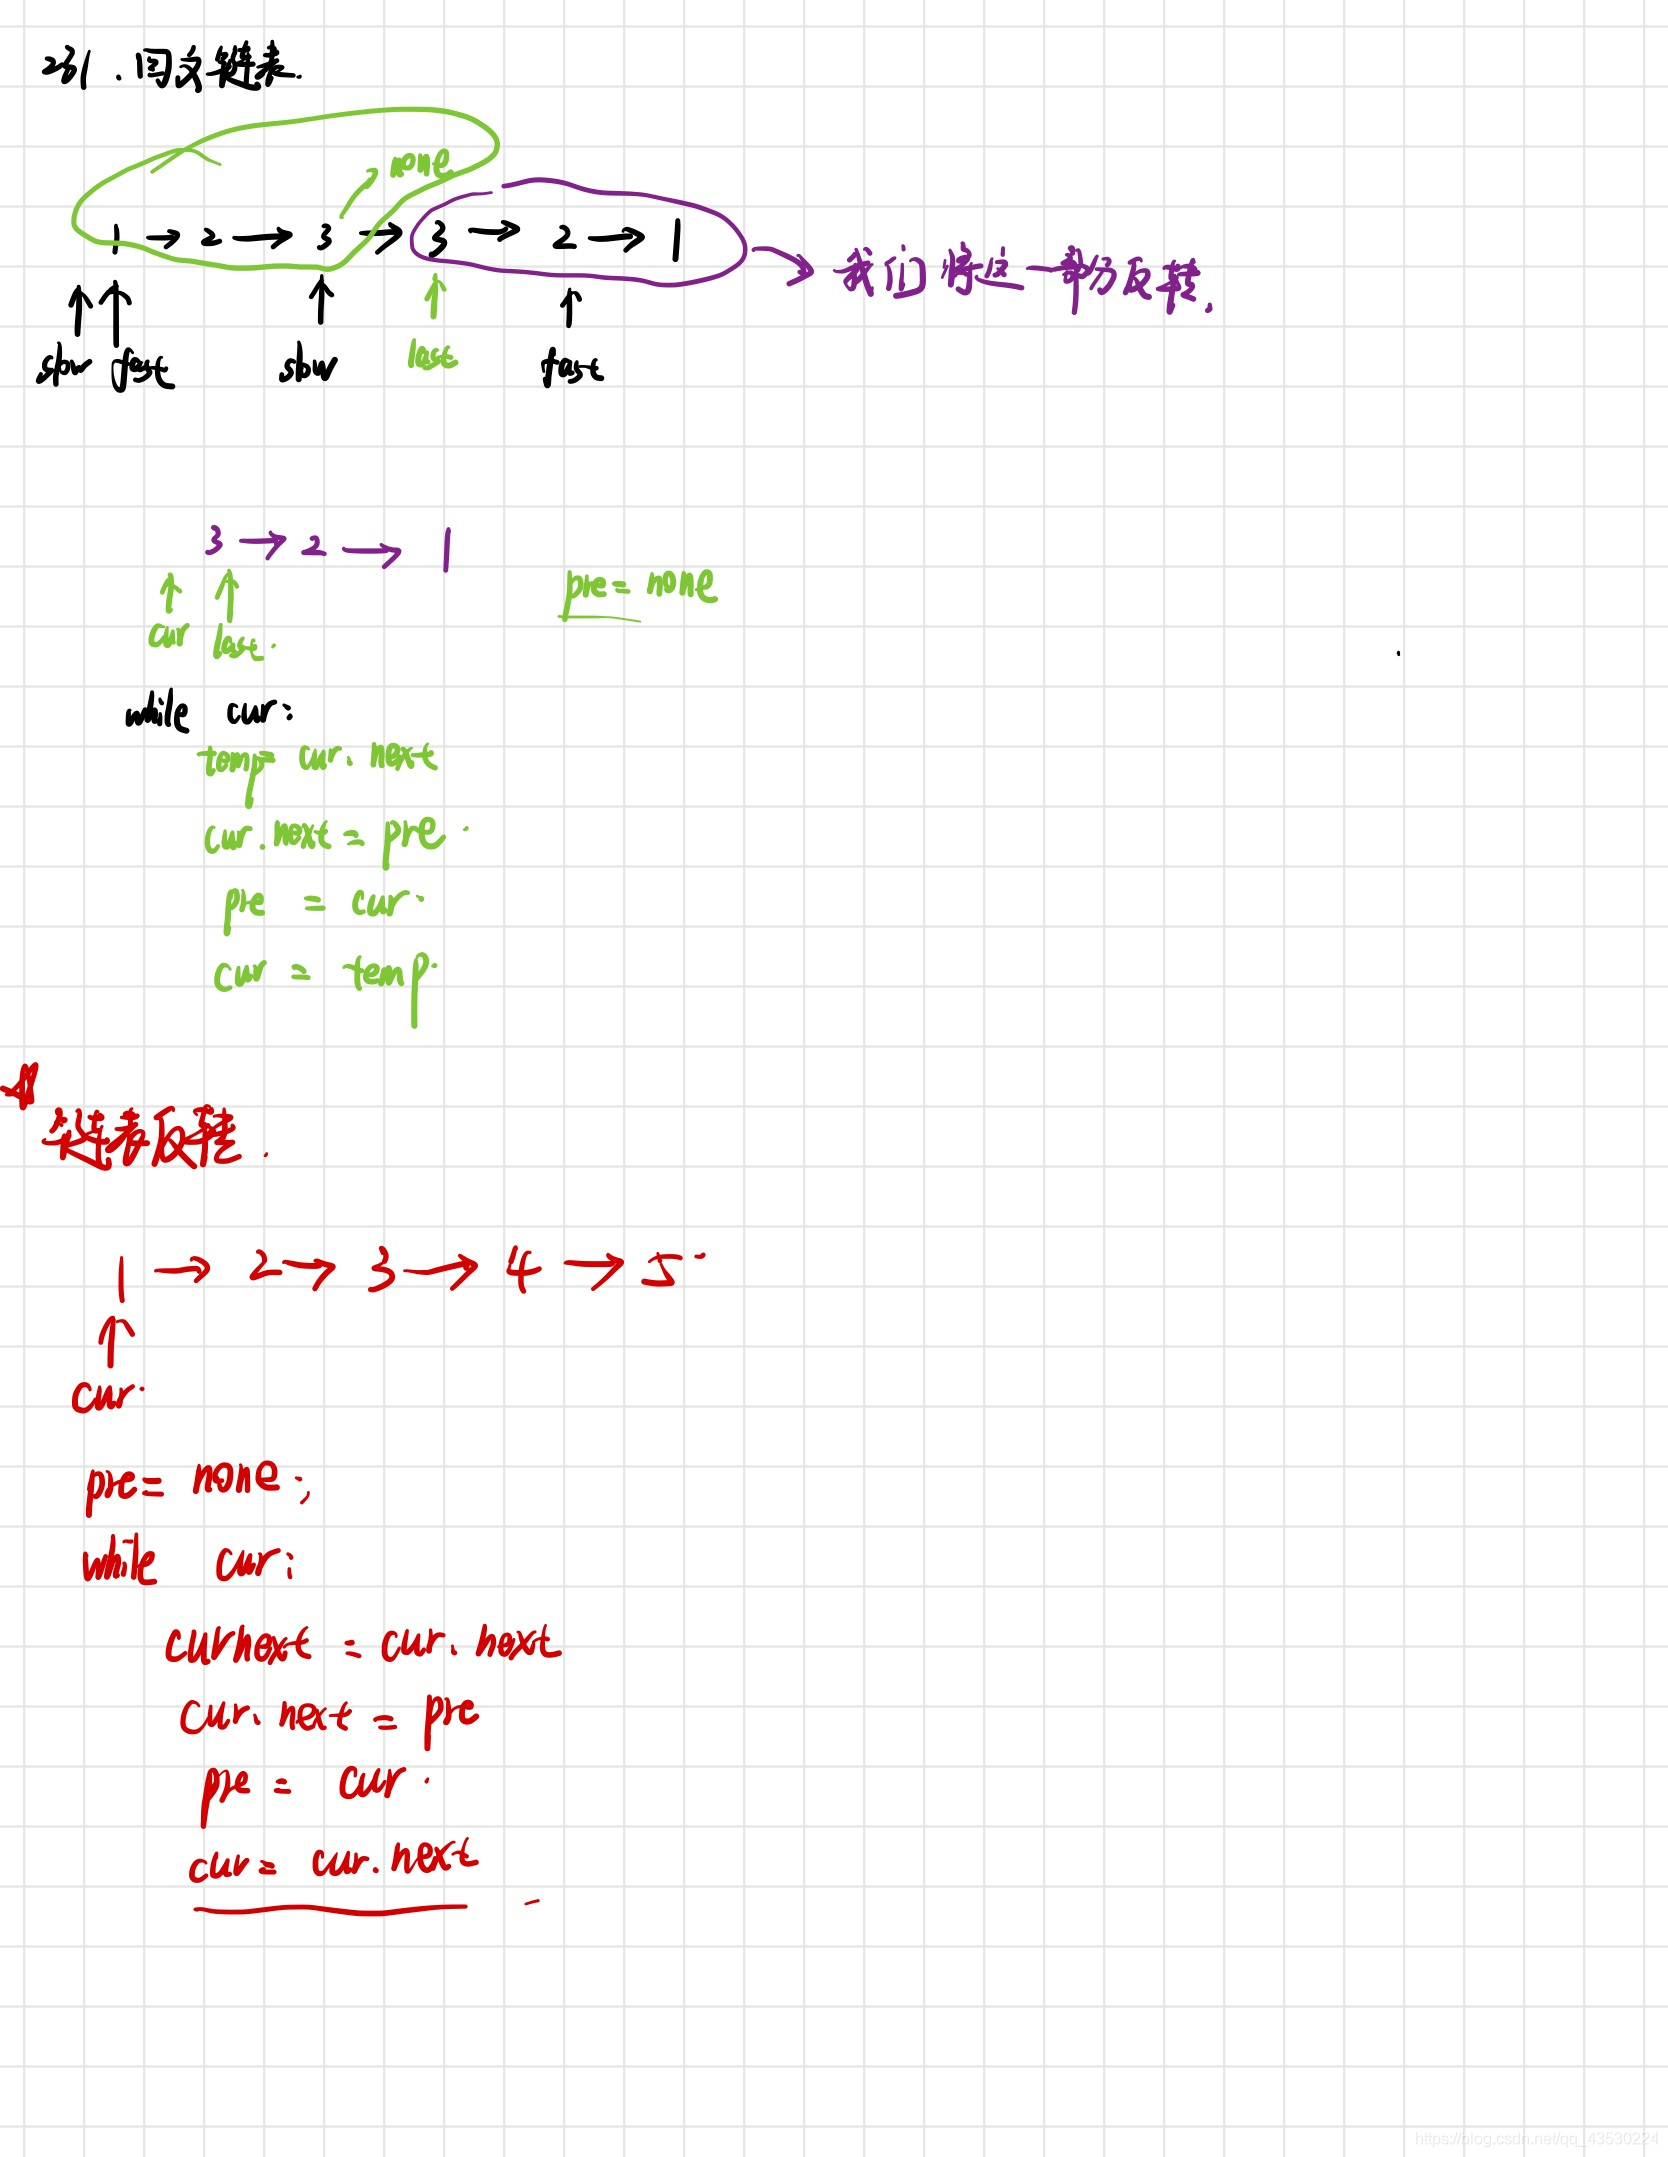 231.回文链表.
none
1 → 2 → 3 → 3 → 2 → 1 → 我们将这一部分反转.
slow fast slow last fast
3 → 2 → 1
pre = none
cur last.
while cur:
temp= cur.next
cur.next = pre.
pre = cur.
cur = temp.
链表反转.
1 → 2 → 3 → 4 → 5
cur.
pre= none;
while cur:
curnext = cur.next
cur.next = pre
pre = cur.
cur= cur.next
https://blog.csdn.net/qq_43530224